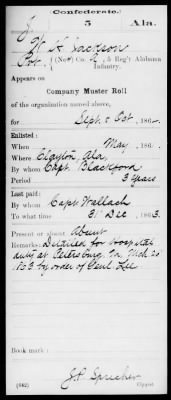 Confederate.
J 5 Ala.
W. H. Jackson
Pvt., (New) Co. K, 5 Reg't Alabama
Infantry.
Appears on
Company Muster Roll
of the organization named above,
for Sept & Oct, 186
Enlisted:
When May, 186
Where Clayton, Ala.
By whom Capt. Blackford
Period 3 Years
Last paid:
By whom Capt Wallach
To what time 31 Dec, 1863.
Present or absent Absent
Remarks: Detailed for Hospital
duty at Petersburg, Va, Mch 20
1863 by order of Genl Lee
Book mark:
(642) Copyist.